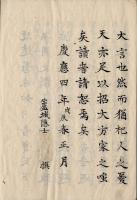 大言也然而猶杞人之憂
天亦足以招大方家之嗤
矣讀者請恕焉矣
慶應四年戊辰春正月
盈城隱士 撰